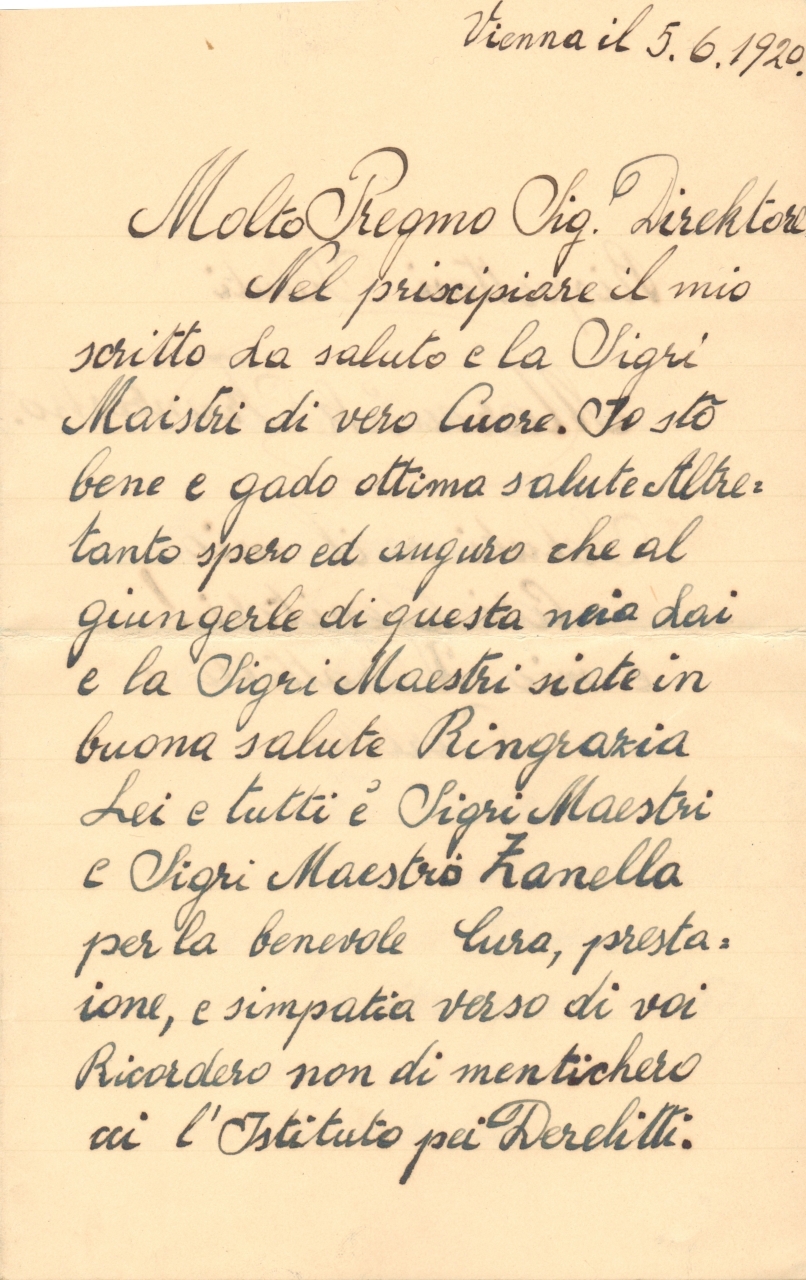 Vienna il 5.6.1920.
Molto Pregmo Sig. Direktore
Nel prixipiare il mio
scritto La saluto e la Sigri
Maistri di vero Cuore. Io stò
bene e gado ottima salute Altre=
tanto spero ed auguro che al
giungerle di questa Lai
e la Sigri Maestri siate in
buona salute Ringrazia
Lei e tutti è Sigri Maestri
e Sigri Maestro Zanella
per la benevole Cura, presta=
ione, e simpatia verso di voi
Ricordero non di mentichero
l'Istituto pei Derelitti.